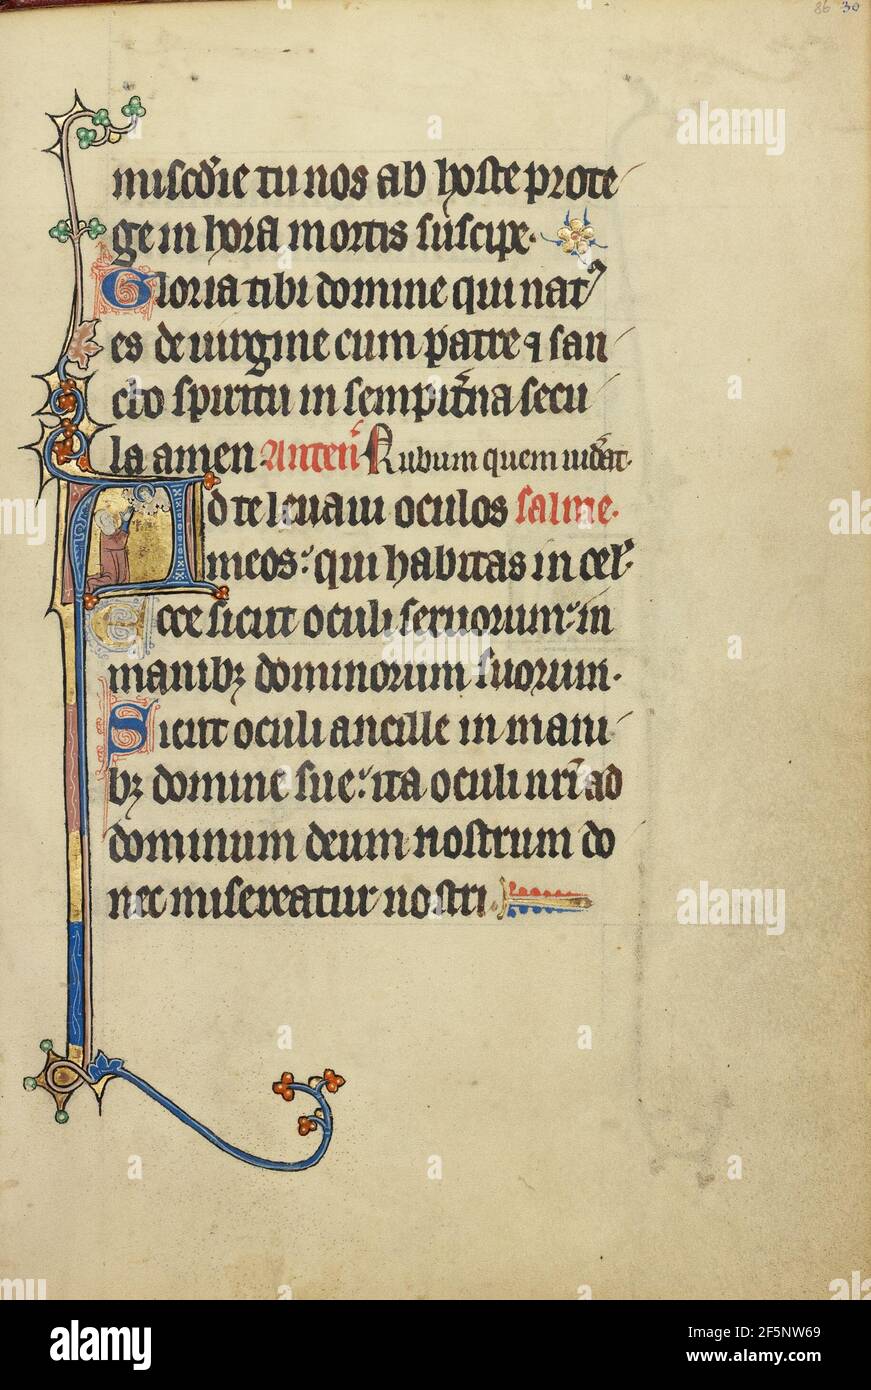 86 30
misc̄die tu nos ab hoste prote
ge in hora mortis suscipe.
Gloria tibi domine qui nat᾽
es de uirgine cum patre ⁊ san
cto spiritu in sempit̄na secu
la amen Anten̄ Rubum quem uid̄at.
Ad te leuaui oculos salme.
meos: qui habitas in cel᾽.
Ecce sicut oculi seruorum: in
manibꝫ dominorum suorum.
Sicut oculi ancille in mani
bꝫ domine sue: ita oculi nr̄i ad
dominum deum nostrum do
nec misereatur nostri.
alamy
alamy
alamy
alamy
a
alamy
Image ID: 2F5NW69
www.alamy.com